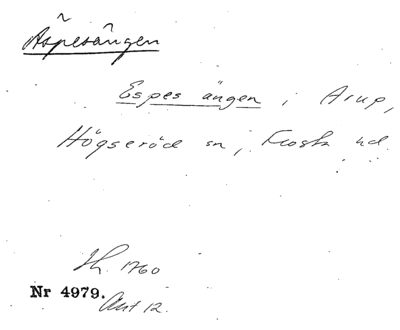 Äspesängen
Espes ängen i Arup,
Högseröd sn, Frosta hd
Lh. 1760
Nr 4979.
Akt 12.